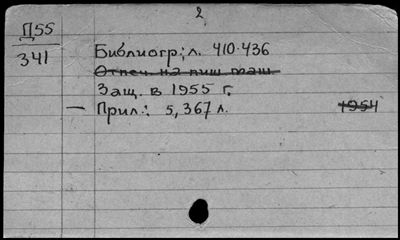 2
Д55
341
Библиогр.: л. 410-436
Отпеч. на пиш. маш.
Защ. в 1955 г.
— Прил.: 5, 367 л.
1954